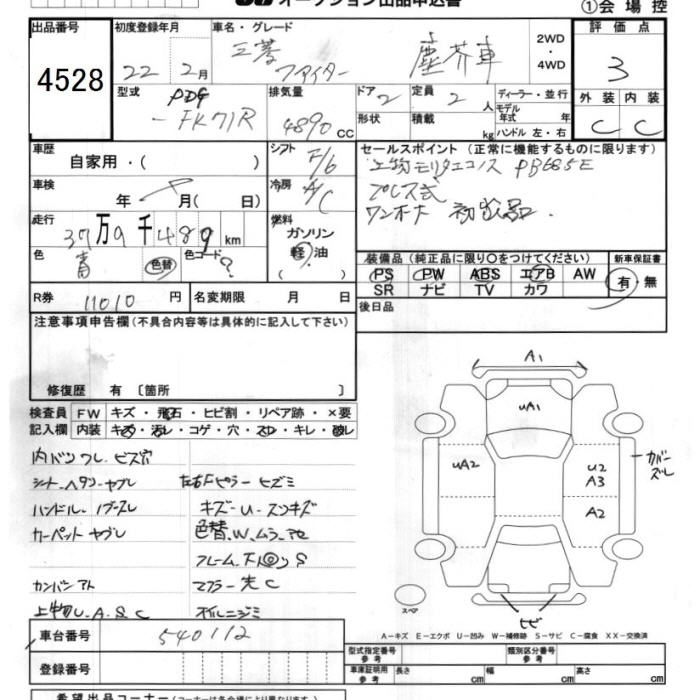 オークション出品申込書
①会場控
出品番号
4528
初度登録年月
22年 2月
車名・グレード
三菱 ファイター 塵芥車
2WD・4WD
評価点
3
型式
PDG-FK71R
排気量
4890 CC
ドア 2
定員 2 人
形状
積載 kg
ディーラー・並行
モデル年式 年
ハンドル 左・右
外装 内装
C C
車歴
自家用・( )
シフト F/6
セールスポイント (正常に機能するものに限ります)
上物モリタエコノス PB685E
プレス式
ワンオーナー
車検
年 月( 日)
冷房 A/C
走行
37万9千489km
燃料
ガソリン
軽油
( )
色 青 色替
色コード ?
装備品 (純正品に限り○をつけてください)
新車保証書
PS PW ABS エアB AW
SR ナビ TV カワ
有・無
R券 11010 円
名変期限 月 日
後日品
注意事項申告欄 (不具合内容等は具体的に記入して下さい)
修復歴 有 〔箇所 〕
検査員記入欄
FW キズ・飛石・ヒビ割・リペア跡・×要
内装 キズ・汚レ・コゲ・穴・スレ・キレ・破レ
内バンワレ、ビス穴
シート、ヘタリ-ヤブレ 左右Fピラーヒズミ
ハンドル、ノブ-スレ キズ-U-スリキズ
カーペット ヤブレ 色替.W.ムラ.
フレーム.下回りS
カンバン アト マフラー先C
上物U.A.S.C オイルニジミ
A1
UA1
UA2
U2
A3
A2
カバーズレ
ヒビ
スペア
A-キズ E-エクボ U-凹み W-補修跡 S-サビ C-腐食 XX-交換済
車台番号 540112
登録番号
型式指定番号 参考
類別区分番号 参考
車庫証明用 参考
長さ cm
幅 cm
高さ cm
希望出品コーナー